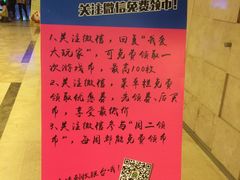 关注微信免费领币!
1.关注微信,回复“我爱
大玩家”,可免费领取一
次游戏币,最高100枚
2.关注微信,菜单栏免费
领取优惠券,先领券、后买
币,享受最低价
3.关注微信参与“周二领
币”,每周都能免费领币